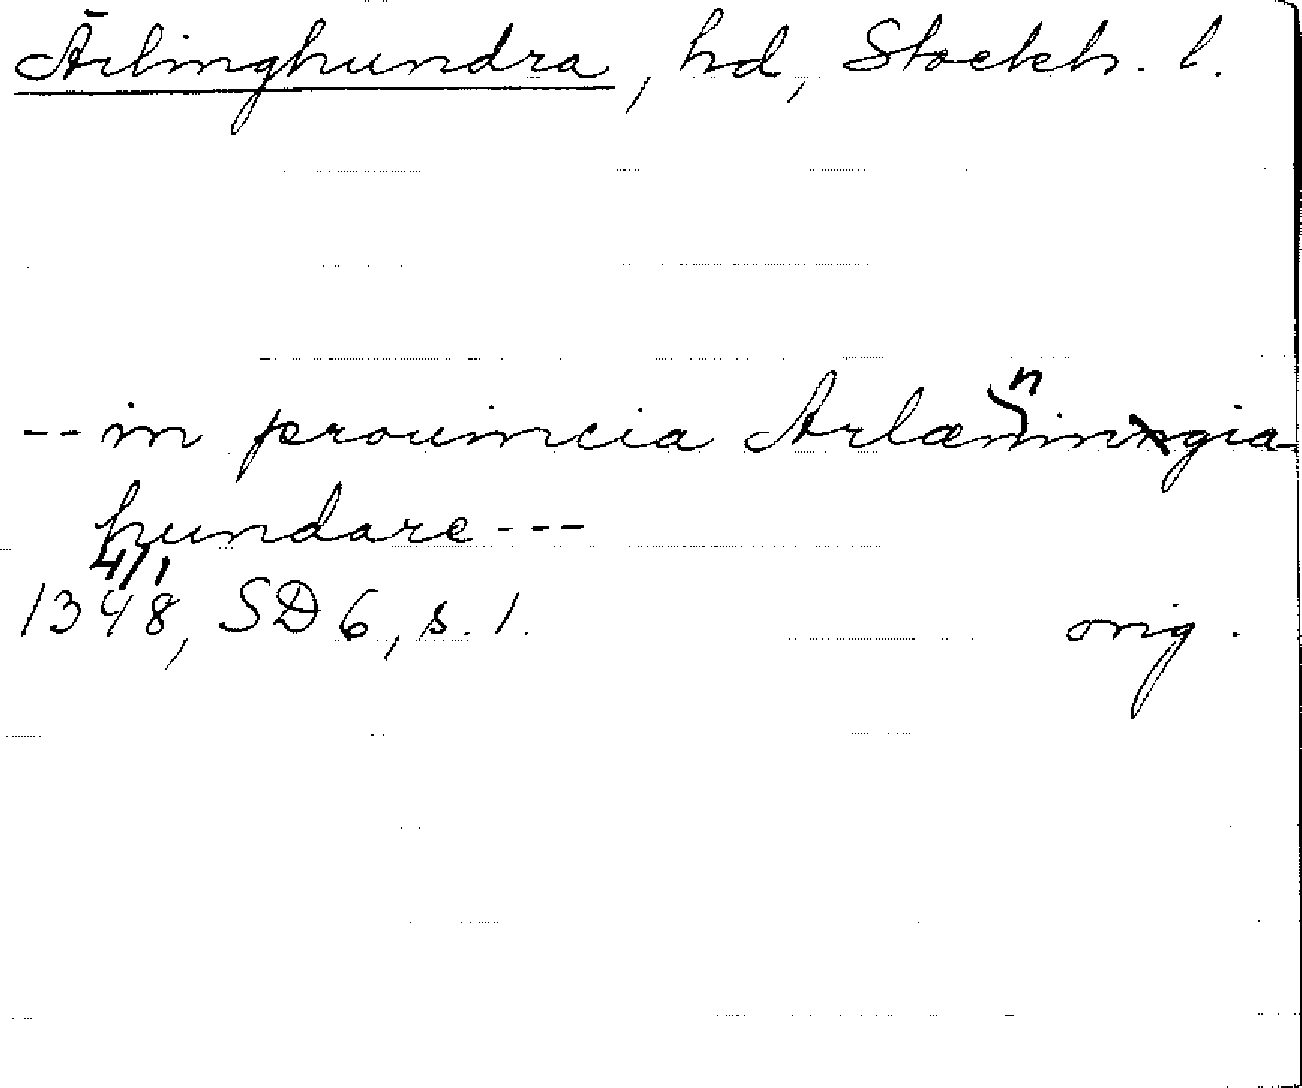 Ärlinghundra, hd, Stockh. l.
n
-- in prouincia Arlæningia
hundare ---
4/1
1348, SD 6, s. 1. orig.